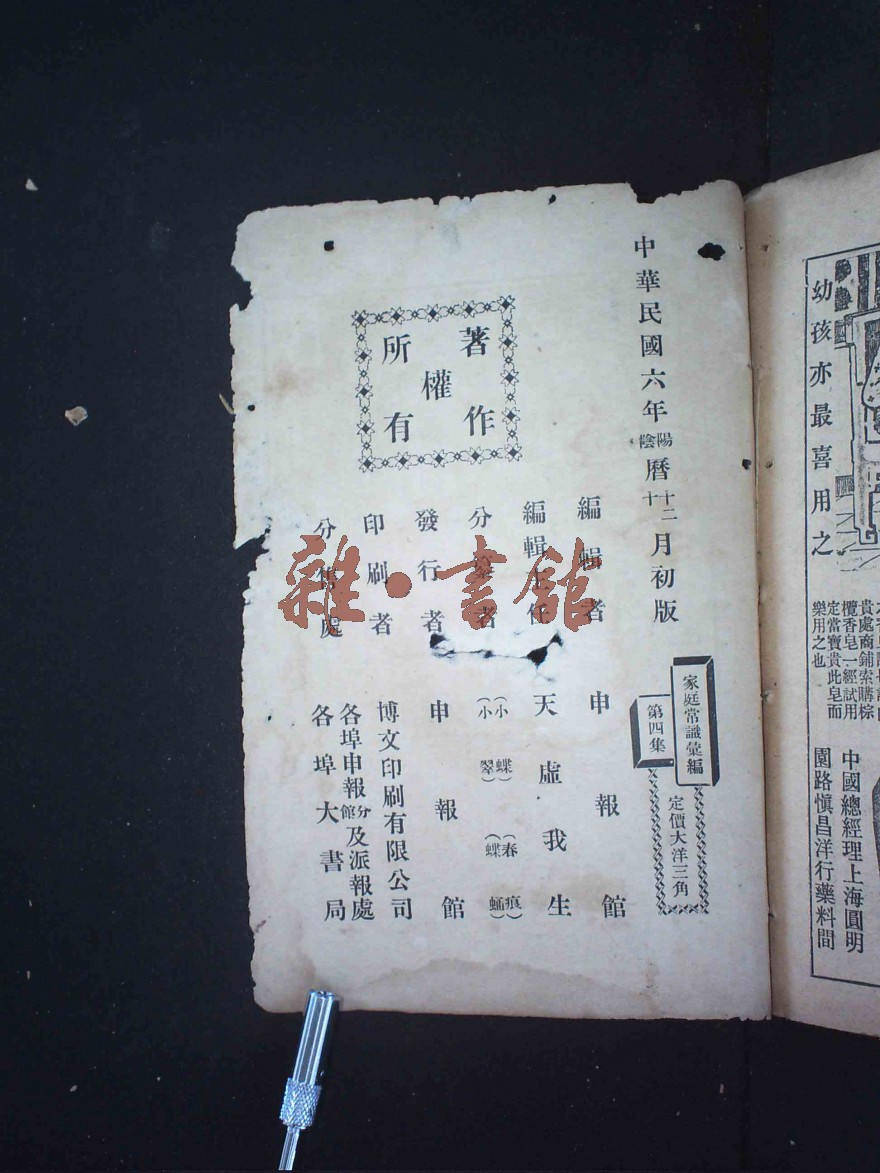 中華民國六年陽陰曆十二十月初版
家庭常識彙編
第四集
定價大洋三角
編輯者 申報館
編輯主任 天虛我生
分纂者 (小蝶)(春痕)(小翠)(蝶蛹)
發行者 申報館
印刷者 博文印刷有限公司
分售處 各埠申報分館及派報處
各埠大書局
著作權所有
雜·書館
幼孩亦最喜用之
貴處商鋪索購棕
欖香皂一經試用
定當寶貴此皂而
樂用之也
中國總經理上海圓明
園路慎昌洋行藥料間